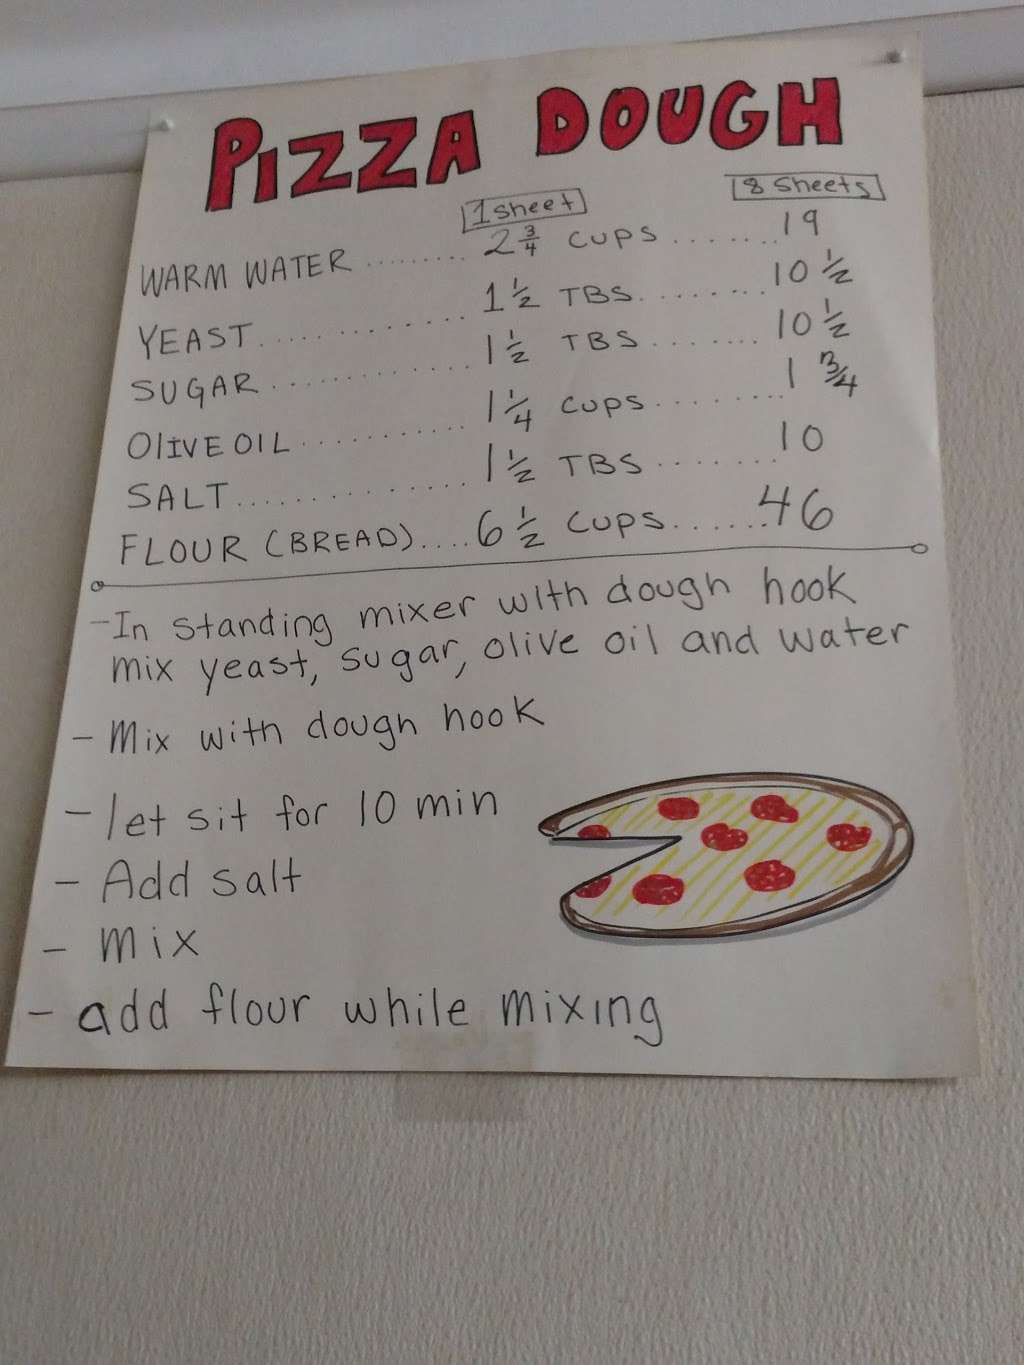 PIZZA DOUGH
1 Sheet 8 Sheets
WARM WATER ......... 2 3/4 CUPS ....... 19
YEAST ............ 1 1/2 TBS ........ 10 1/2
SUGAR ............ 1 1/2 TBS ....... 10 1/2
OLIVE OIL .......... 1 1/4 CUPS ........ 1 3/4
SALT ............. 1 1/2 TBS ....... 10
FLOUR (BREAD) .... 6 1/2 CUPS ....... 46
- In standing mixer with dough hook
mix yeast, sugar, olive oil and water
- Mix with dough hook
- let sit for 10 min
- Add salt
- mix
- add flour while mixing